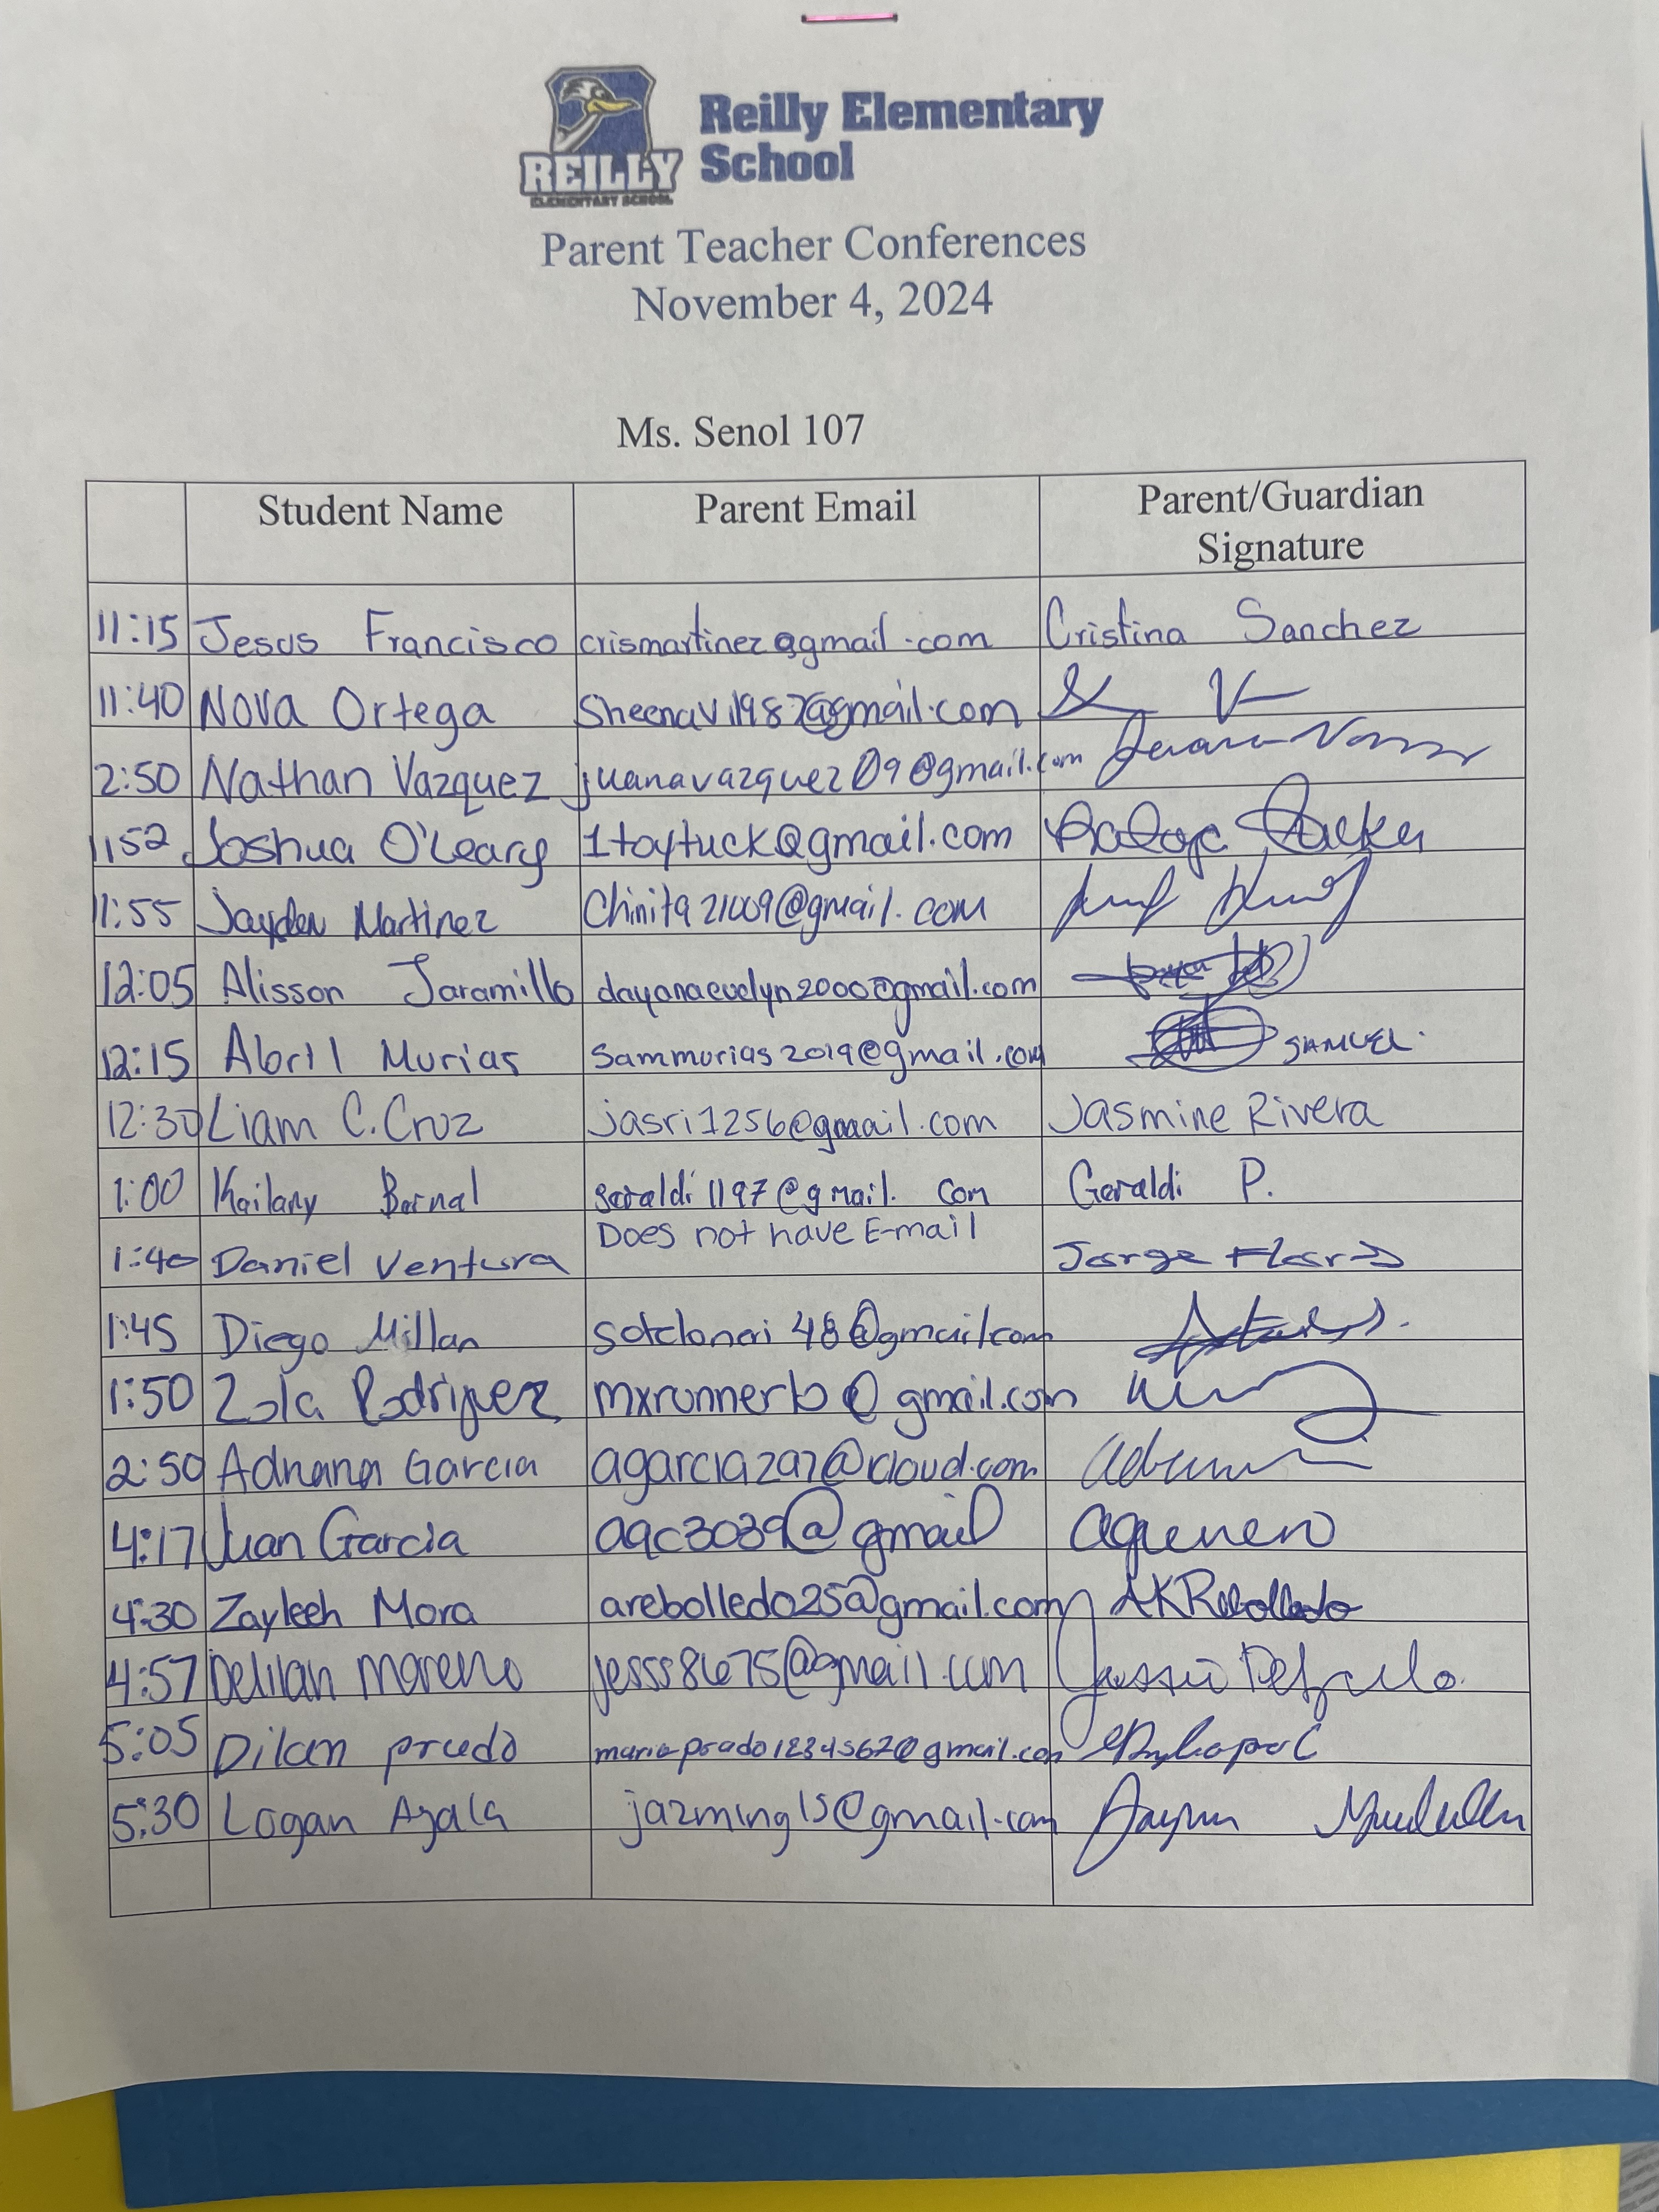 REILLY
ELEMENTARY SCHOOL
Reilly Elementary
School
Parent Teacher Conferences
November 4, 2024
Ms. Senol 107
Student Name Parent Email Parent/Guardian
Signature
11:15 Jesus Francisco crismartinez@gmail.com Cristina Sanchez
11:40 Nova Ortega Sheenavi1987@gmail.com
2:50 Nathan Vazquez juanavazquez09@gmail.com
1152 Joshua O'Leary 1toytuck@gmail.com
11:55 Jayden Martinez Chinita21009@gmail.com
12:05 Alisson Jaramillo dayanaevelyn2000@gmail.com
12:15 Abril Murias Sammurias2019@gmail.com SAMUEL.
12:30 Liam C. Cruz jasri1256@gmail.com Jasmine Rivera
1:00 Kailany Bernal geraldi1197@gmail.com Geraldi P.
1:40 Daniel Ventura Does not have E-mail Jorge Flores
1:45 Diego Millan
1:50 Zola Rodriguez mxrunnerb@gmail.com
2:50 Adriana Garcia
4:17 Juan Garcia aqc3039@gmail aguerero
4:30 Zayleeh Mora arebolledo25@gmail.com AKRebolledo
4:57 Delilah Moreno jesss8675@gmail.com Jessie Delgado
5:05 Dilan prado mariaprado1234562@gmail.com
5:30 Logan Ayala jazming15@gmail.com